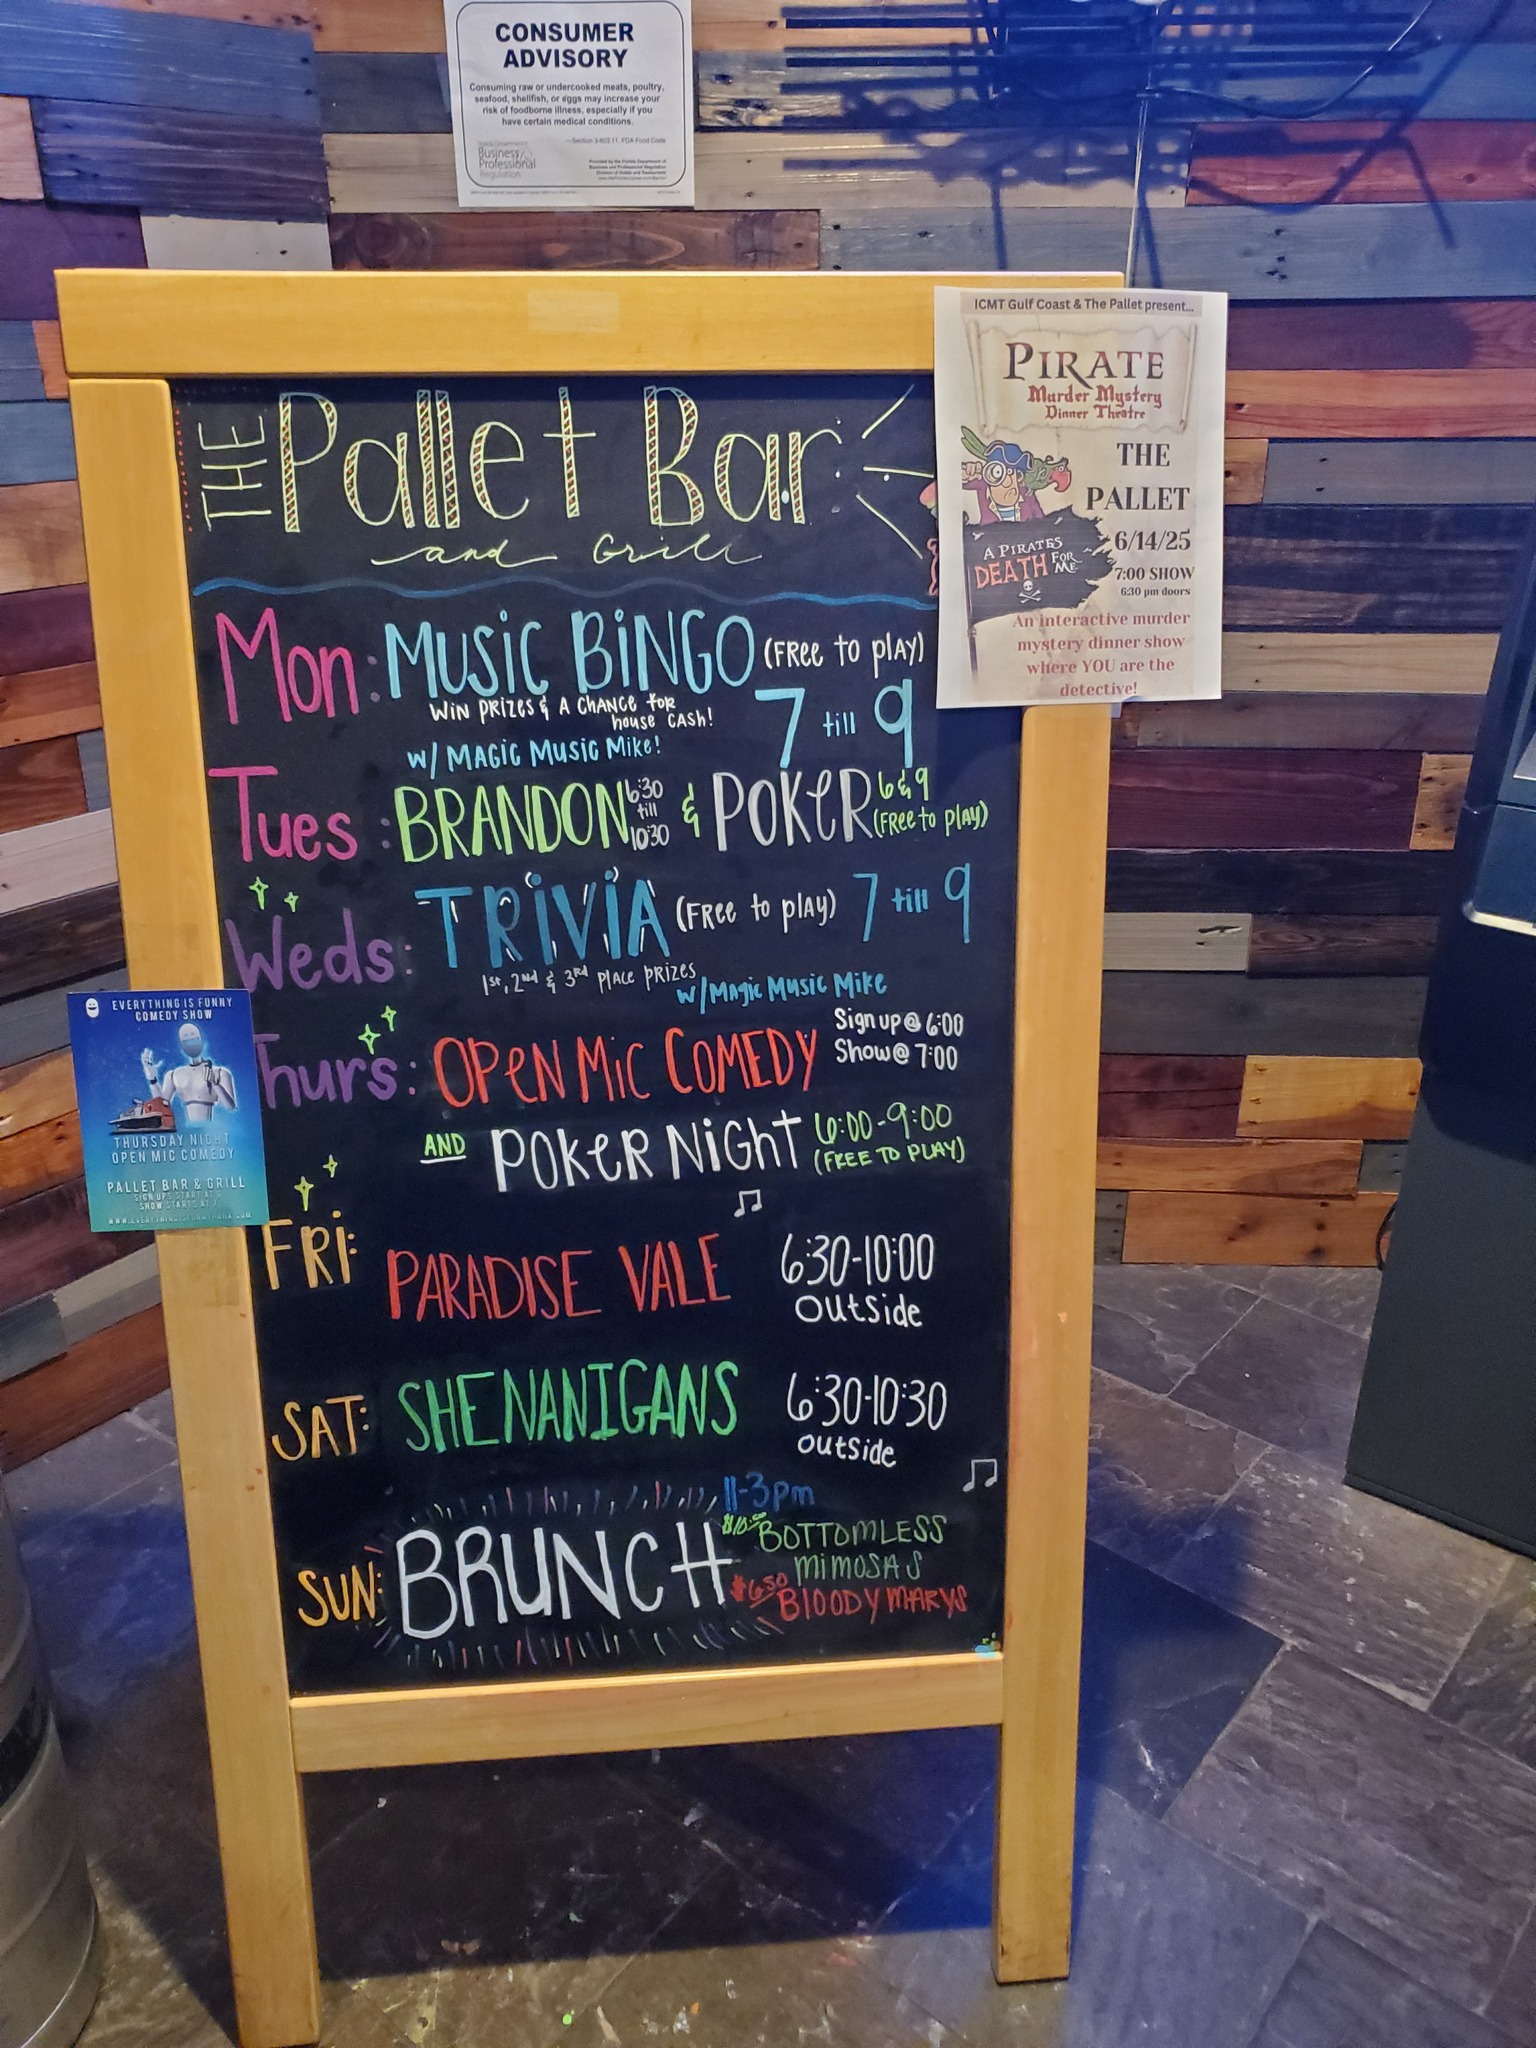 CONSUMER
ADVISORY
Consuming raw or undercooked meats, poultry,
seafood, shellfish, or eggs may increase your
risk of foodborne illness, especially if you
have certain medical conditions.
—Section 3-603.11, FDA Food Code
Business
Professional
Regulation
Provided by the Florida Department of
Business and Professional Regulation
Division of Hotels and Restaurants
ICMT Gulf Coast & The Pallet present...
PIRATE
Murder Mystery
Dinner Theatre
THE
PALLET
6/14/25
A PIRATES
DEATH FOR
ME
7:00 SHOW
6:30 pm doors
An interactive murder
mystery dinner show
where YOU are the
detective!
THE Pallet Bar
and Grill
Mon: MUSIC BINGO (FREE TO PLAY)
WIN PRIZES & A CHANCE for
house CASH!
7 till 9
w/ MAGIC MUSIC MIKE!
Tues: BRANDON 6:30 till 10:30 & POKER 6 & 9 (FREE to play)
Weds: TRIVIA (FREE to play) 7 till 9
1st, 2nd & 3rd PLACE PRIZES
w/ MAGIC MUSIC MIKE
Thurs: OPEN MIC COMEDY Sign up @ 6:00
Show @ 7:00
AND POKER NIGHT 6:00-9:00
(FREE TO PLAY)
FRI: PARADISE VALE 6:30-10:00
outside
SAT: SHENANIGANS 6:30-10:30
outside
SUN: BRUNCH 11-3pm
$10.00 BOTTOMLESS
MIMOSAS
$6.50 BLOODY MARYS
EVERYTHING IS FUNNY
COMEDY SHOW
THURSDAY NIGHT
OPEN MIC COMEDY
PALLET BAR & GRILL
SIGN UPS START AT 6
SHOW STARTS AT 7